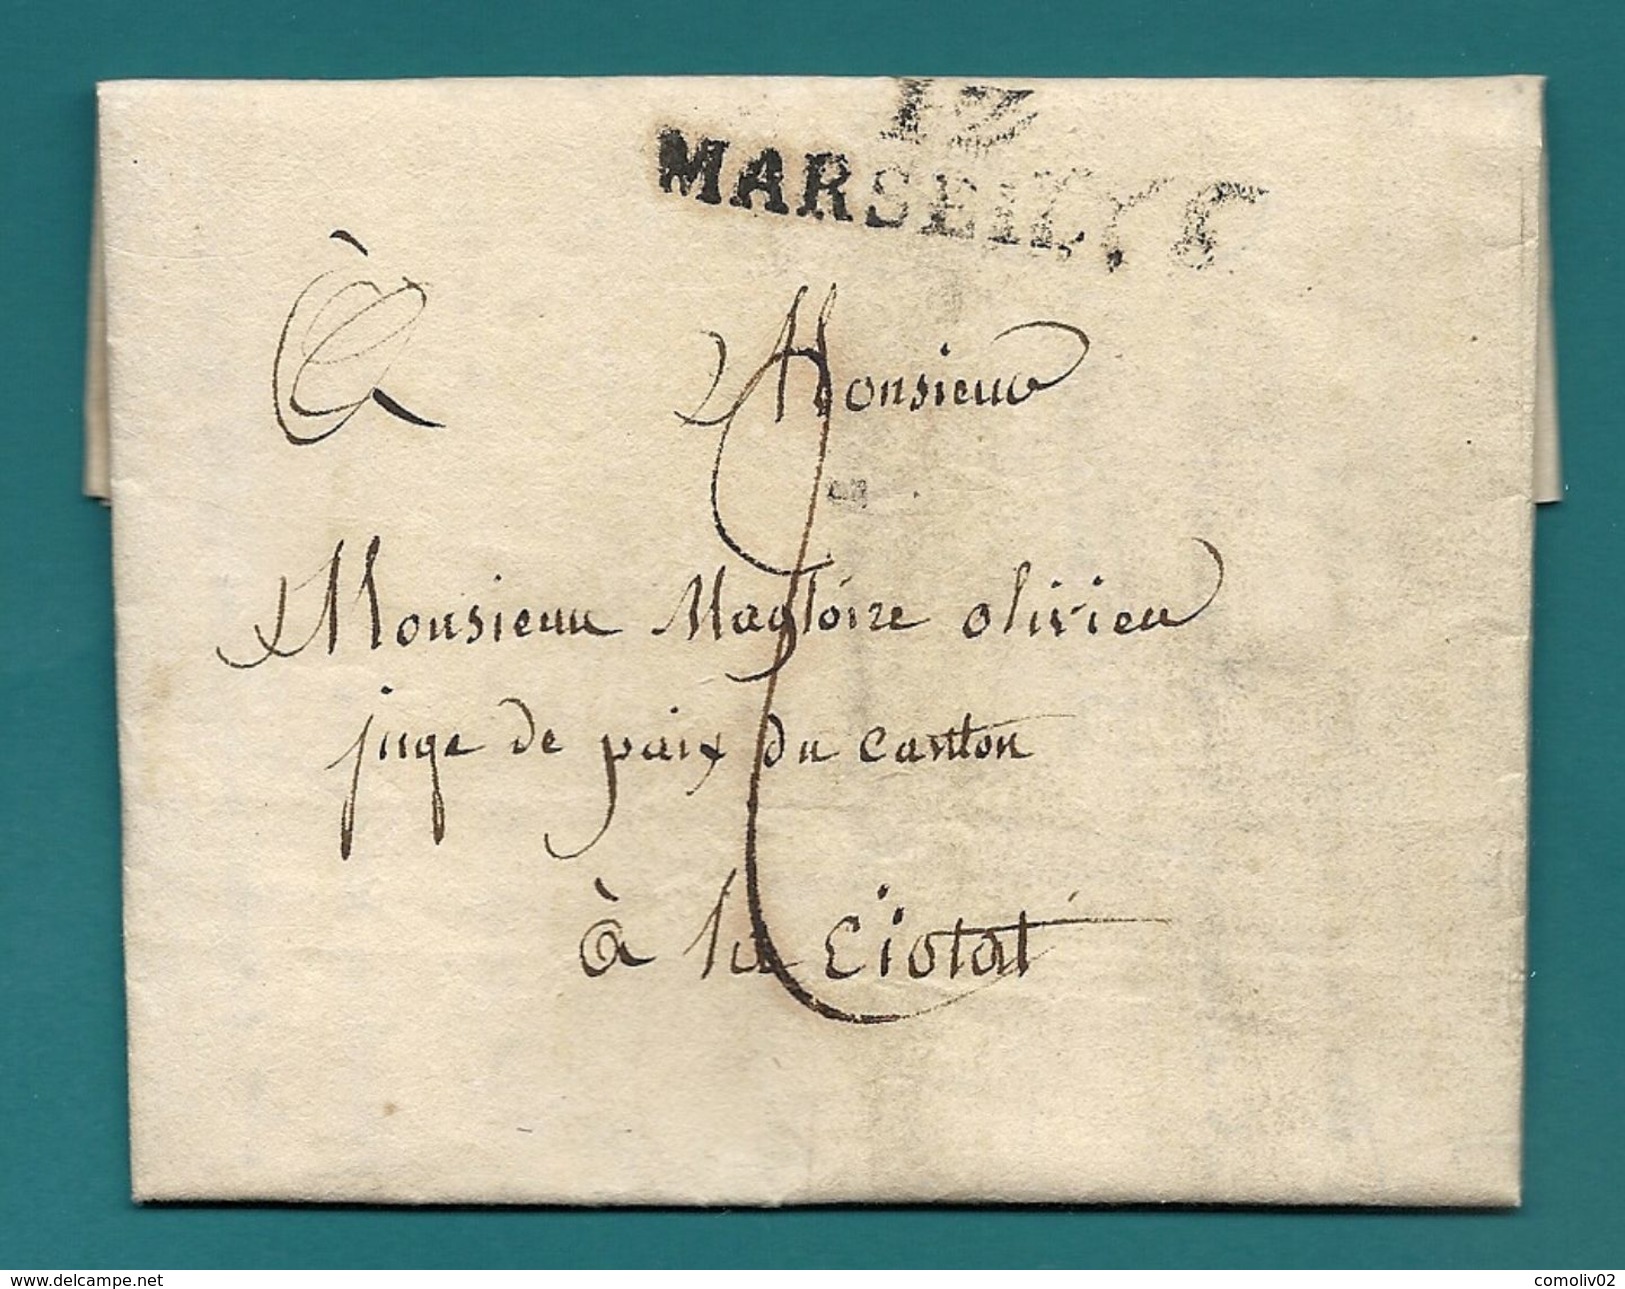 12
MARSEILLE
à Monsieur
Monsieur Magloire olivier
juge de paix du canton
à la Ciotat
2
www.delcampe.net
comoliv02